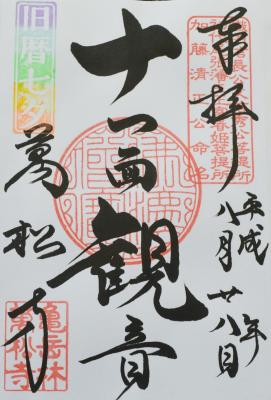 奉拝
平成廿八年
八月 八日
十一面観音
萬松寺
旧暦七夕
加藤清正公命名
亀岳林
萬松寺